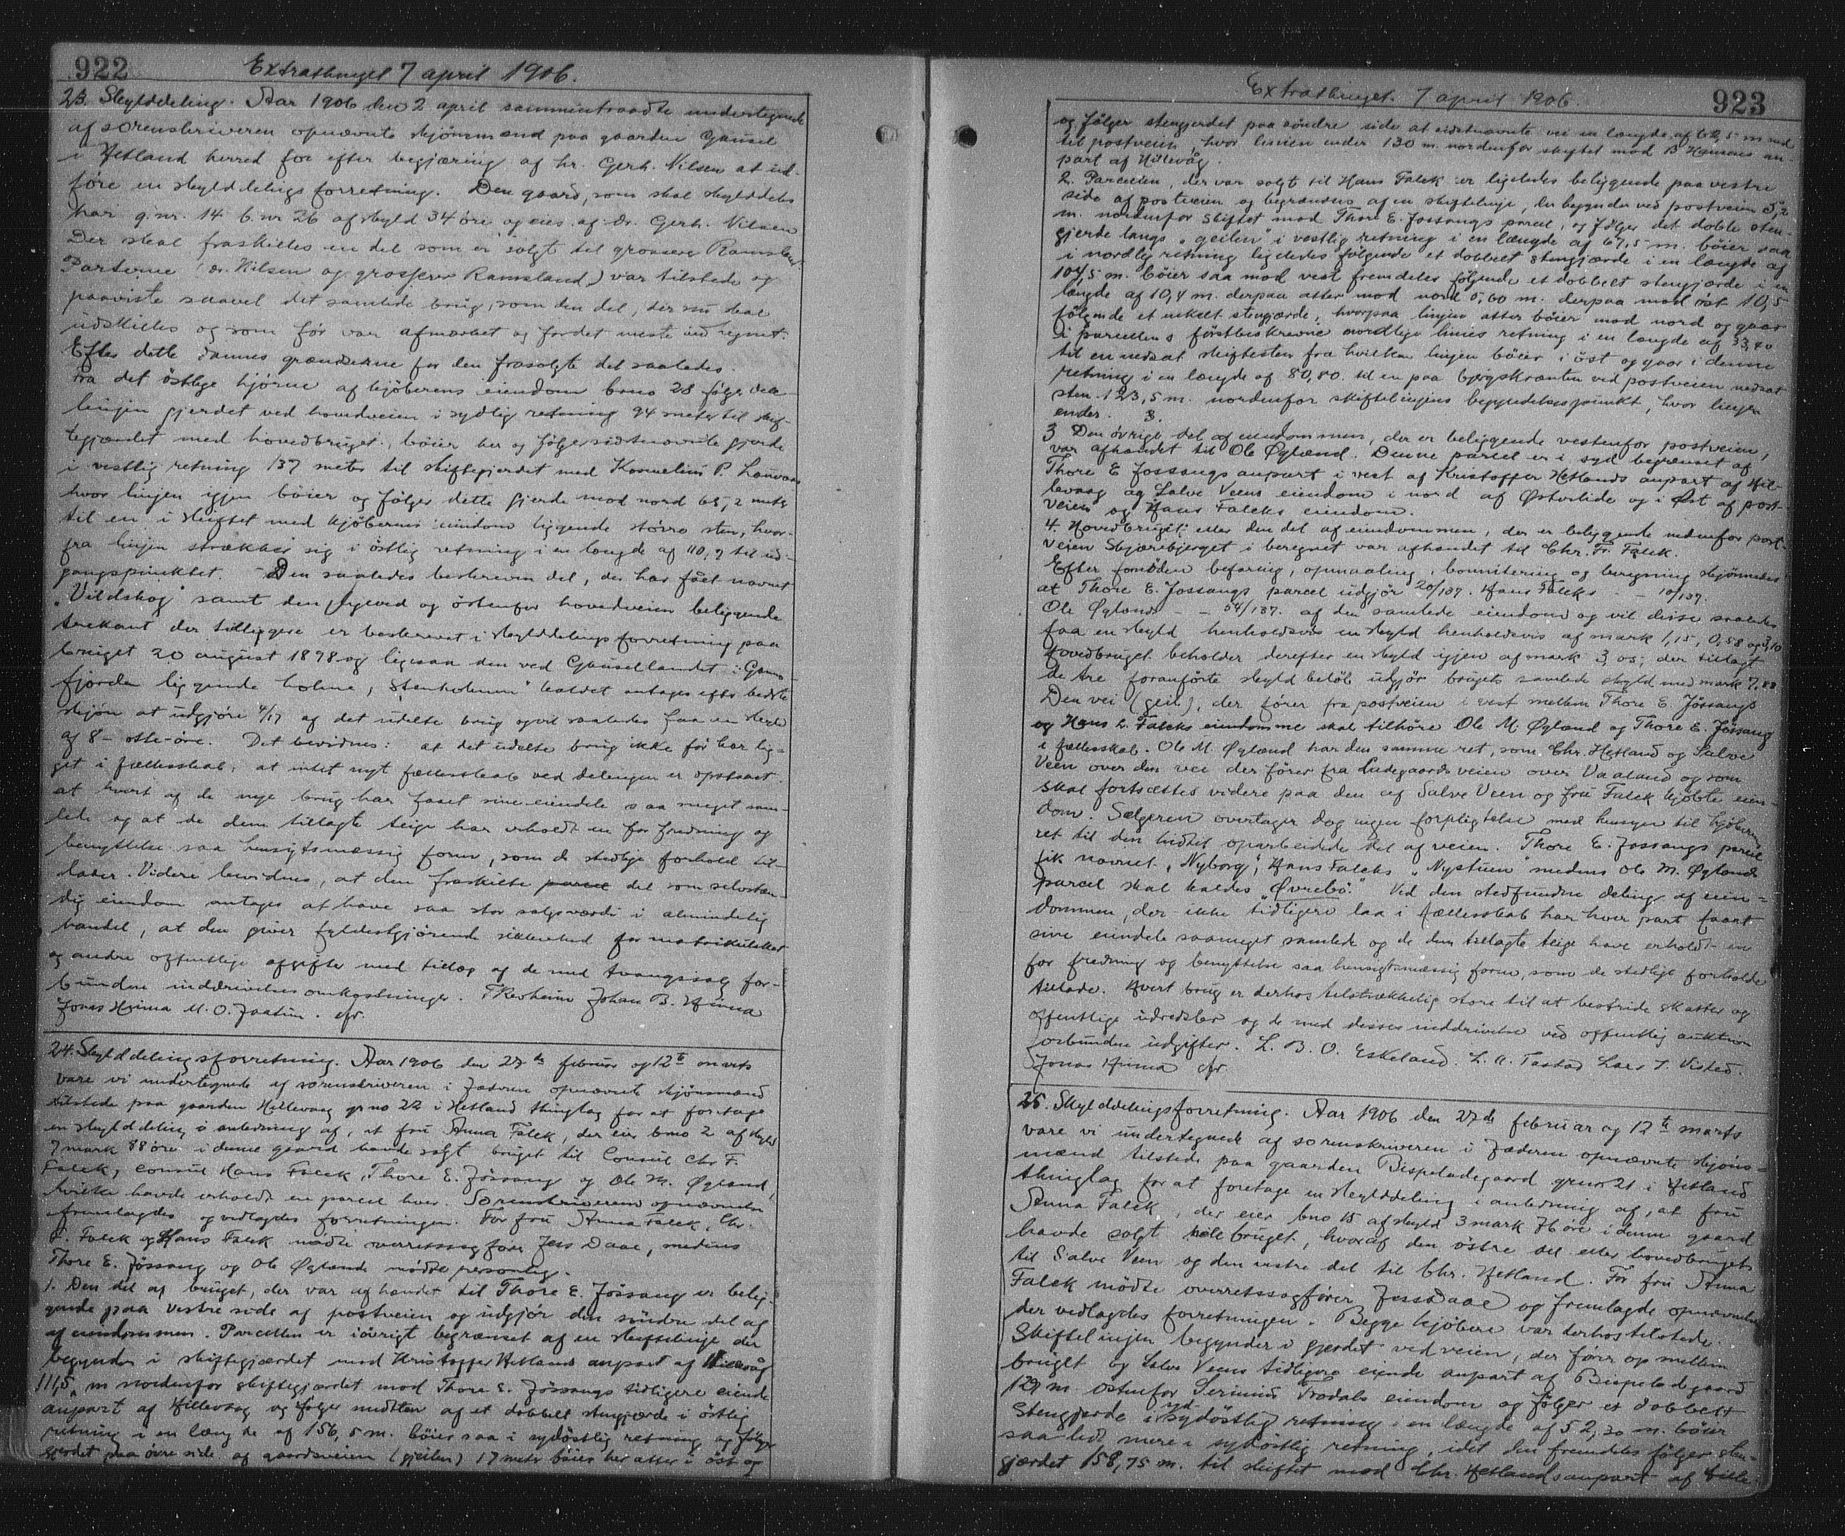 922
Extrathinget 7 april 1906.
23. Skylddeling. Aar 1906 den 2 april sammentraadte undertegnede
af sorenskriveren opnævnte skjönsmænd paa gaarden Gausel
i Hetland herred for efter begjæring af hr. Gerh. Nilsen at ud-
före en skylddelingsforretning. Den gaard, som skal skylddeles
har g.nr. 14 b.nr 26 af skyld 34 öre og eies af Dr. Gerh. Nilsen
Der skal fraskilles en del som er solgt til grosserer Ramsland.
Parterne (dr. Nilsen og grosserer Ramsland) var tilstede og
paaviste saavel det samlede brug, som den del, der nu skal
udskilles og som för var afmærket og for det meste indhegnet.
Efter dette dannes grændserne for den frasolgte del saaledes.
Fra det östlige hjörne af kjöberens eiendom bno 28 fölger dele
linjen gjerdet ved hovedveien i sydlig retning 94 meter til skif-
tegjærdet med hovedbruget, böier her og fölger sidstnævnte gjerde
i vestlig retning 137 meter til skiftegjerdet med Kornelius P.
hvor linjen igjen böier og fölger dette gjerde mod nord 65,2 meter
til en i skiftet med kjöberens eiendom liggende större sten, hvor-
fra linjen strækker sig i östlig retning i en længde af 110,7 til ud-
gangspunktet. Den saaledes beskrevne del, der har fået navnet
"Vildskog" samt den sydved og östenfor hovedveien beliggende
trekant der tidligere er beskrevet i skylddelingsforretning paa
bruget 20 august 1898 og ligesaa den ved Gausellandet i Gans-
fjorden liggende holme, "Stenholmen" kaldet antages efter bedste
skjön at udgjöre 4/17 af det udelte brug og vil saaledes faa en skyld
af 8 - otte - öre. Det bevidnes: at det udelte brug ikke för har lig-
get i fællesskab, at intet nyt fællesskab ved delingen er opstaaet.
at hvert af de nye brug har faaet sine eiendele saa meget sam-
lede og at de dem tillagte teige har erholdt en for fredning og
benyttelse saa hensigtsmæssig form, som de stedlige forhold til-
lader. Videre bevidnes, at den fraskilte parcel del som selvstæn-
dig eiendom antages at have saa stor salgsværdi i almindelig
handel, at den giver fyldestgjörende sikkerhed for matrikulskat
og andre offentlige afgifter med tillæg af de med tvangssalg for-
bundne inddrivelsesomkostninger. T Revheim Johan B. Hinna
Jonas Hinna M. O. Jaatun. cfr.
24. Skylddelingsforretning. Aar 1906 den 27de februar og 12te marts
vare vi undertegnede af sorenskriveren i Jæderen opnævnte skjönsmænd
tilstede paa gaarden Hillevaag gr no 22 i Hetland thinglag for at foretage
en skylddeling i anledning af, at fru Anna Falck, der eier bno 2 af skyld
7 mark 88 öre i denne gaard havde solgt bruget til Consul Chr F.
Falck, consul Hans Falck, Thore E. Jössang og Ole M. Øgland,
hvilke havde erholdt en parcel hver. Sorenskriverens opnævnelse
fremlagdes og vedlagdes forretningen. For fru Anna Falck, Chr.
F. Falck og Hans Falck mödte overretssagförer Jess Daae, medens
Thore E. Jössang og Ole Øgland mödte personlig.
1. Den del af bruget, der var afhændet til Thore E. Jössang er belig-
gende paa vestre side af postveien og udgjör den söndre del af
af eiendommen. Parcellen er iövrigt begrænset af en skiftelinje der
begynder i skiftegjærdet med Kristoffer Hetlands anpart af Hillevåg
111,5 m nordenfor skiftegjærdet mod Thore E. Jössangs tidligere eiende
anpart af Hillevaag og fölger midten af et dobbelt stengjærde i östlig
retning i en længde af 156,5 m. böier saa i sydöstlig retning og fölger
gjerdet paa övre side af gaardsveien (gjeilen) 17 meter böier her atter i öst og
Extrathinget. 7 april 1906.
923
og fölger stengjerdet paa söndre side af sidstnævnte vei en længde af 68,5 m ned
til postveien, hvor linien ender 130 m. nordenfor skiftet mod B Hansens an-
part af Hillevåg.
2. Parcellen, der var solgt til Hans Falck er ligeledes beliggende paa vestre
side af postveien og begrændses af en skiftelinje, der begynder ved postveien 5,2
m. nordenfor skiftet mod Thore E. Jossangs parcel, og fölger det doble sten-
gjerde langs "geilen" i vestlig retning i en længde af 67,5 m. böier saa
i nordlig retning ligeledes fölgende et dobbelt stengjærde i en længde af
104,5 m. böier saa mod vest fremdeles fölgende et dobbelt stengjærde i en
længde af 10,4 m. derpaa atter mod nord 0,60 m. derpaa mod öst 10,5
fölgende et enkelt stengjærde, hvorpaa linjen atter böier mod nord og gaar
i parcellens förstbeskrevne nordlige linies retning i en længde af 33,40
til en nedsat skiftesten fra hvilken linjen böier i öst og gaar i denne
retning i en længde af 80,80. til en paa bergskrænten ved postveien nedsat
sten. 123,5 m. nordenfor skiftelinjens begyndelsespunkt, hvor linjen
ender. 3.
3 Den övrige del af eiendommen, der er beliggende vestenfor postveien,
var afhændet til Ole Øgland. Denne parcel er i syd begrænset af
Thore E Jossangs anpart i vest af Kristoffer Hetlands anpart af Hil-
levaag og Salve Veens eiendom i nord af Østerlide og i Øst af post-
veien og Hans Falcks eiendom.
4. Hovedbruget; eller den del af eiendommen, der er beliggende nedenfor post-
veien Skjærebjerget i beregnet var afhændet til Chr. Fr. Falck.
Efter foreöden befaring, opmaaling, bonnitering og beregning skjönnedes
at Thore E. Jossangs parcel udgjör 20/137. Hans Falcks - - 10/137.
Ole Øglands - - 54/137. af den samlede eiendom og vil disse saaledes
faa en skyld henholdsvis en skyld henholdsvis af mark 1,15, 0,58 og 3,10
Hovedbruget beholder derefter en skyld igjen af mark 3,05; der tillagt
de tre foranförte skyldbelöb udgjör brugets samlede skyld med mark 7,88
Den vei (geil), der förer fra postveien i vest mellem Thore E. Jössangs
og Hans L. Falcks eiendomme skal tilhöre Ole M. Øgland og Thore E. Jössang
i fællesskab. Ole M. Øgland har den samme ret, som Chr. Hetland og Salve
Veen over den vei der förer fra Ladegaardsveien over Vaaland og som
skal fortsættes videre paa den af Salve Veen og fru Falck kjöbte eien-
dom. Sælgeren overtager dog ingen forpligtelse med hensyn til kjöberens
ret til den hidtil oparbeidede del af veien. Thore E. Jossangs parcel
fik navnet "Nyborg", Hans Falcks "Nystuen" medens Ole M. Øglands
parcel skal kaldes "Øvrebö." Ved den stedfundne deling af eien-
dommen, der ikke tidligere laa i fællesskab har hver part faaet
sine eiendele saameget samlede og de dem tillagte teige have erholdt en
for fredning og benyttelse saa hensigtsmæssig form, som de stedlige forholde
tillade. Hvert brug er derhos tilstrækkelig store til at bestride skatter og
offentlige udredsler og de med disses inddrivelse ved offentlig auktion
forbundne udgifter. L. B. O. Eskeland. L. A. Tastad Lars T. Visted.
Jonas Hinna cfr.
25. Skylddelingsforretning. Aar 1906 den 27de februar og 12te marts
vare vi undertegnede af sorenskriveren i Jæderen opnævnte skjöns-
mænd tilstede paa gaarden Bispeladegaard grno 21 i Hetland
thinglag for at foretage en skylddeling i anledning af, at fru
Anna Falck, der eier bno 15 af skyld 3 mark 76 öre i denne gaard
havde solgt hele bruget, hvoraf den östre del eller hovedbruget
til Salve Veen og den vestre del til Chr. Hetland. For fru Anna
Falck mödte overretssagförer Jess Daae og fremlagde opnævnelse
der vedlagdes forretningen. Begge kjöbere var derhos tilstede.
Skiftelinjen begynder i gjerdet ved veien, der förer op mellem
bruget og Salve Veens tidligere eiende anpart af Bispeladegaard
129 m. östenfor Serinius Tradals eiendom og fölger et dobbelt
stengjerde i sydöstlig retning i en længde af 52,20 m. böier
saa lidt mere i sydöstlig retning, idet den fremdeles fölger sten-
gjærdet 158,75 m. til skiftet mod Chr. Hetlands anpart af Hille-